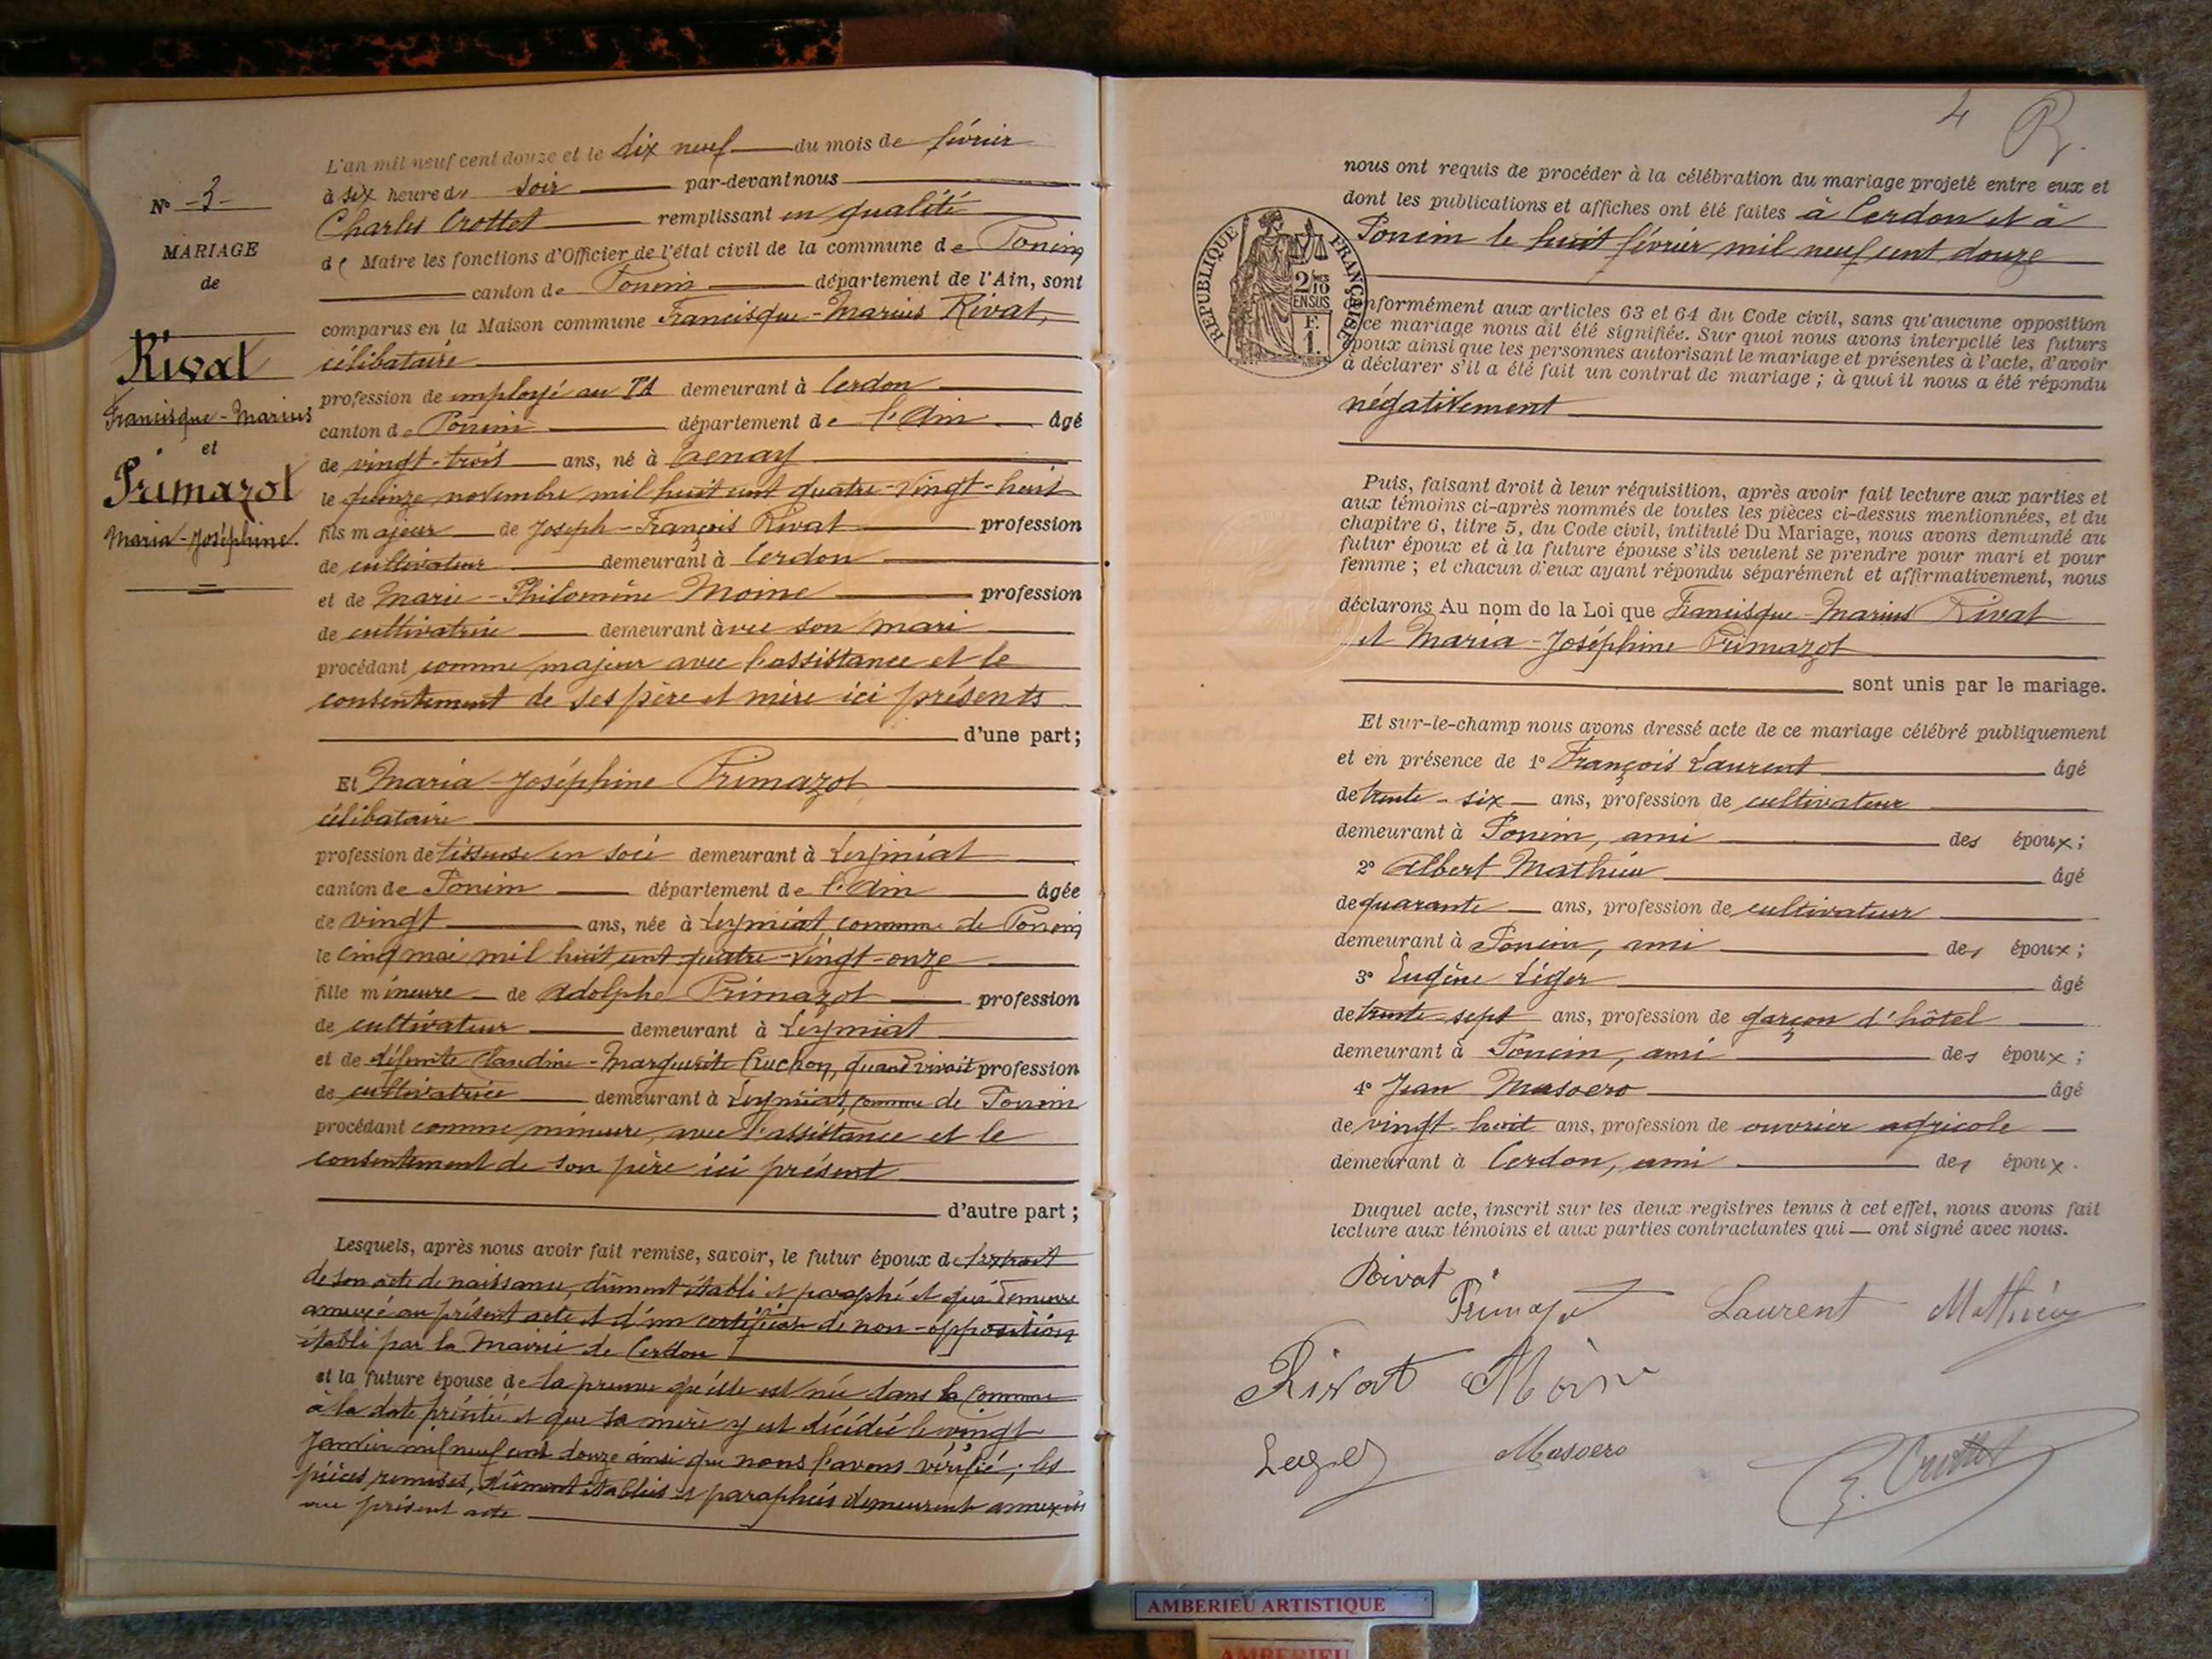 L'an mil neuf cent douze et le dix neuf du mois de février
à six heure du soir par-devant nous
Charles Crottet remplissant en qualité
de Maire les fonctions d'Officier de l'état civil de la commune de Poncin
canton de Poncin département de l'Ain, sont
comparus en la Maison commune Francisque-Marius Rivat,
célibataire
profession de employé au demeurant à Cerdon
canton de Poncin département de l'Ain âgé
de vingt-trois ans, né à Tenay
le quinze novembre mil huit cent quatre-vingt-huit
fils majeur de Joseph-François Rivat profession
de cultivateur demeurant à Cerdon
et de Marie-Philomène Moine profession
de cultivatrice demeurant avec son mari
procédant comme majeur avec l'assistance et le
consentement de ses père et mère ici présents
d'une part;
Et Maria-Joséphine Primazot
célibataire
profession de tisseuse en soie demeurant à Leymiat
canton de Poncin département de l'Ain âgée
de vingt ans, née à Leymiat, commune de Poncin
le cinq mai mil huit cent quatre-vingt-onze
fille mineure de Adolphe Primazot profession
de cultivateur demeurant à Leymiat
et de défunte Claudine-Marguerite Cruchon, quand vivait profession
de cultivatrice demeurant à Leymiat, commune de Poncin
procédant comme mineure, avec l'assistance et le
consentement de son père ici présent
d'autre part;
Lesquels, après nous avoir fait remise, savoir, le futur époux de l'extrait
de son acte de naissance, dûment établi et paraphé et qui demeure
annexé au présent acte et d'un certificat de non-opposition
établi par la Mairie de Cerdon
et la future épouse de la preuve qu'elle est née dans la commune
à la date précitée et que sa mère y est décédée le vingt
janvier mil neuf cent douze ainsi que nous l'avons vérifié; les
pièces remises, dûment établies et paraphées demeurent annexées
au présent acte
N° -3-
MARIAGE
de
Rivat
Francisque-Marius
et
Primazot
Maria-Joséphine.
4
nous ont requis de procéder à la célébration du mariage projeté entre eux et
dont les publications et affiches ont été faites à Cerdon et à
Poncin le huit février mil neuf cent douze
RÉPUBLIQUE FRANÇAISE
2/10 EN SUS
F. 1.
conformément aux articles 63 et 64 du Code civil, sans qu'aucune opposition
à ce mariage nous ait été signifiée. Sur quoi nous avons interpellé les futurs
époux ainsi que les personnes autorisant le mariage et présentes à l'acte, d'avoir
à déclarer s'il a été fait un contrat de mariage; à quoi il nous a été répondu
négativement
Puis, faisant droit à leur réquisition, après avoir fait lecture aux parties et
aux témoins ci-après nommés de toutes les pièces ci-dessus mentionnées, et du
chapitre 6, titre 5, du Code civil, intitulé Du Mariage, nous avons demandé au
futur époux et à la future épouse s'ils veulent se prendre pour mari et pour
femme; et chacun d'eux ayant répondu séparément et affirmativement, nous
déclarons Au nom de la Loi que Francisque-Marius Rivat
et Maria-Joséphine Primazot
sont unis par le mariage.
Et sur-le-champ nous avons dressé acte de ce mariage célébré publiquement
et en présence de 1° François Laurent âgé
de trente-six ans, profession de cultivateur
demeurant à Poncin, ami des époux;
2° Albert Mathieu âgé
de quarante ans, profession de cultivateur
demeurant à Poncin, ami des époux;
3° Eugène Léger âgé
de trente-sept ans, profession de garçon d'hôtel
demeurant à Poncin, ami des époux;
4° Jean Masoero âgé
de vingt-huit ans, profession de ouvrier agricole
demeurant à Cerdon, ami des époux.
Duquel acte, inscrit sur les deux registres tenus à cet effet, nous avons fait
lecture aux témoins et aux parties contractantes qui ont signé avec nous.
Rivat
Primazot Laurent Mathieu
Rivat Moine
Leger Masoero C. Crottet
AMBERIEU ARTISTIQUE
AMBERIEU